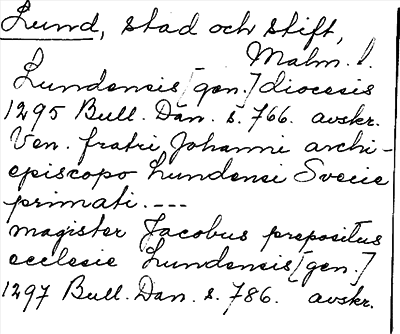 Lund, stad och stift,
Malm. l.
Lundensis [gen.] diocesis
1295 Bull. Dan. s. 766. avskr.
Ven. fratri Johanni archi-
episcopo Lundensi Svecie
primati. ---
magister Jacobus prepositus
ecclesie Lundensis [gen.]
1297 Bull. Dan. s. 786. avskr.